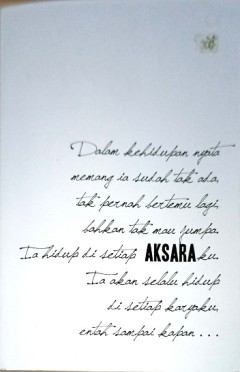 Dalam kehidupan nyata
memang ia sudah tak ada,
tak pernah bertemu lagi,
bahkan tak mau jumpa.
Ia hidup di setiap AKSARAku.
Ia akan selalu hidup
di setiap karyaku,
entah sampai kapan . . .